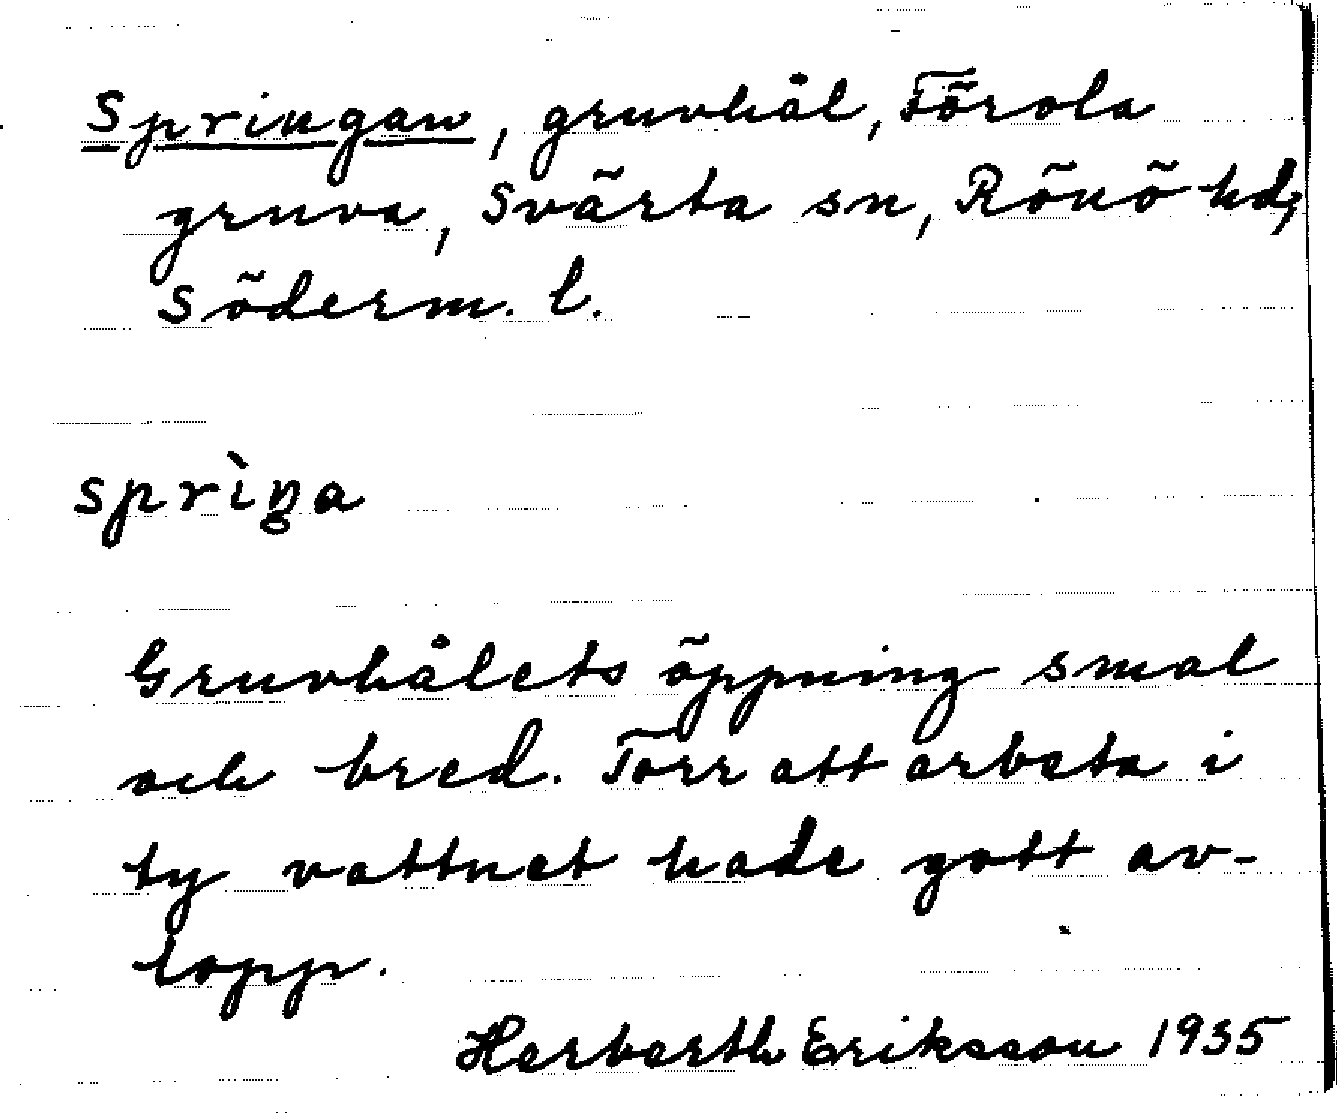 Springan, gruvhål, Förola
gruva, Svärta sn, Rönö hd,
Söderm. l.
sprìŋa
Gruvhålets öppning smal
och bred. Torr att arbeta i
ty vattnet hade gott av-
lopp.
Herberth Eriksson 1935